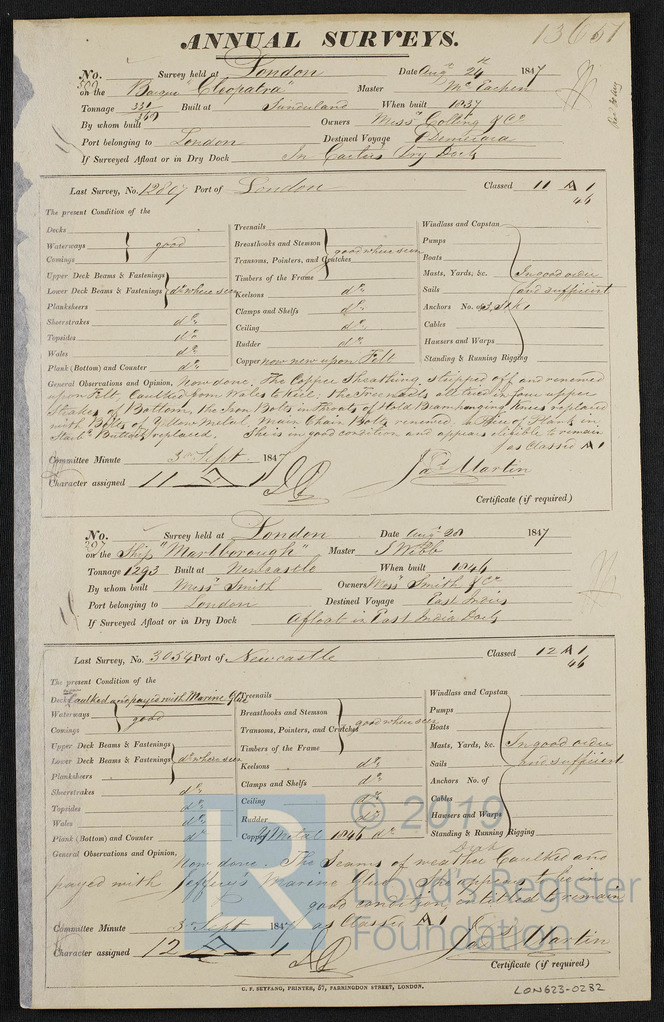 ANNUAL SURVEYS.
13651
No. 500 Survey held at London Date Augt 24th 1847
on the Barque "Cleopatra" Master McEachen
Tonnage 331/360 Built at Sunderland When built 1837
By whom built Owners Messrs Colling & Co
Port belonging to London Destined Voyage Demerara
If Surveyed Afloat or in Dry Dock In Carter's Dry Dock
Last Survey, No. 12807 Port of London Classed 11 A 1
46
The present Condition of the
Decks
Waterways good
Comings
Upper Deck Beams & Fastenings
Lower Deck Beams & Fastenings do where seen
Planksheers
Sheerstrakes do
Topsides do
Wales do
Plank (Bottom) and Counter do
Treenails
Breasthooks and Stemson good where seen
Transoms, Pointers, and Crutches
Timbers of the Frame
Keelsons do
Clamps and Shelfs do
Ceiling do
Rudder do
Copper now new upon Felt
Windlass and Capstan
Pumps
Boats
Masts, Yards, &c. In good order
Sails and sufficient
Anchors No. of
Cables
Hausers and Warps
Standing & Running Rigging
General Observations and Opinion, Now done. The Copper Sheathing stripped off and renewed
upon Felt. Caulked from Wales to Keel. the Treenails all tried in four upper
Strakes of Bottom, the Iron Bolts in throats of Hold Beam hanging Knees replaced
with Bolts of Yellow Metal, Main Chain Bolts renewed, a piece of Plank in
Starbd Buttock replaced. She is in good condition and appears eligible to remain
as Classed A 1
Committee Minute 3 Sept 1847
Character assigned 11 A 1
Jas Martin
Certificate (if required)
No. 507 Survey held at London Date Augt 28 1847
on the Ship "Marlborough" Master J Webb
Tonnage 1293 Built at Newcastle When built 1846
By whom built Messrs Smith Owners Messrs Smith & Co
Port belonging to London Destined Voyage East Indies
If Surveyed Afloat or in Dry Dock Afloat in East India Dock
Last Survey, No. 3054 Port of Newcastle Classed 12 A 1
46
The present Condition of the
Decks Caulked and payed with Marine Glue
Waterways good
Comings
Upper Deck Beams & Fastenings
Lower Deck Beams & Fastenings do where seen
Planksheers
Sheerstrakes do
Topsides do
Wales do
Plank (Bottom) and Counter do
Treenails
Breasthooks and Stemson
Transoms, Pointers, and Crutches good where seen
Timbers of the Frame
Keelsons do
Clamps and Shelfs do
Ceiling do
Rudder do
Copper Y Metal 1846 do
Windlass and Capstan
Pumps
Boats
Masts, Yards, &c. In good order
Sails and sufficient
Anchors No. of
Cables
Hausers and Warps
Standing & Running Rigging
General Observations and Opinion, Now done. The Seams of weather Deck Caulked and
payed with Jeffery's Marine Glue. She appears to be in
good condition, entitled to remain
as Classed A 1
Committee Minute 3 Sept 1847
Character assigned 12 A 1
Jas Martin
Certificate (if required)
C. F. SEYFANG, PRINTER, 57, FARRINGDON STREET, LONDON.
LON623-0282
© 2019
Lloyd's Register
Foundation
LR